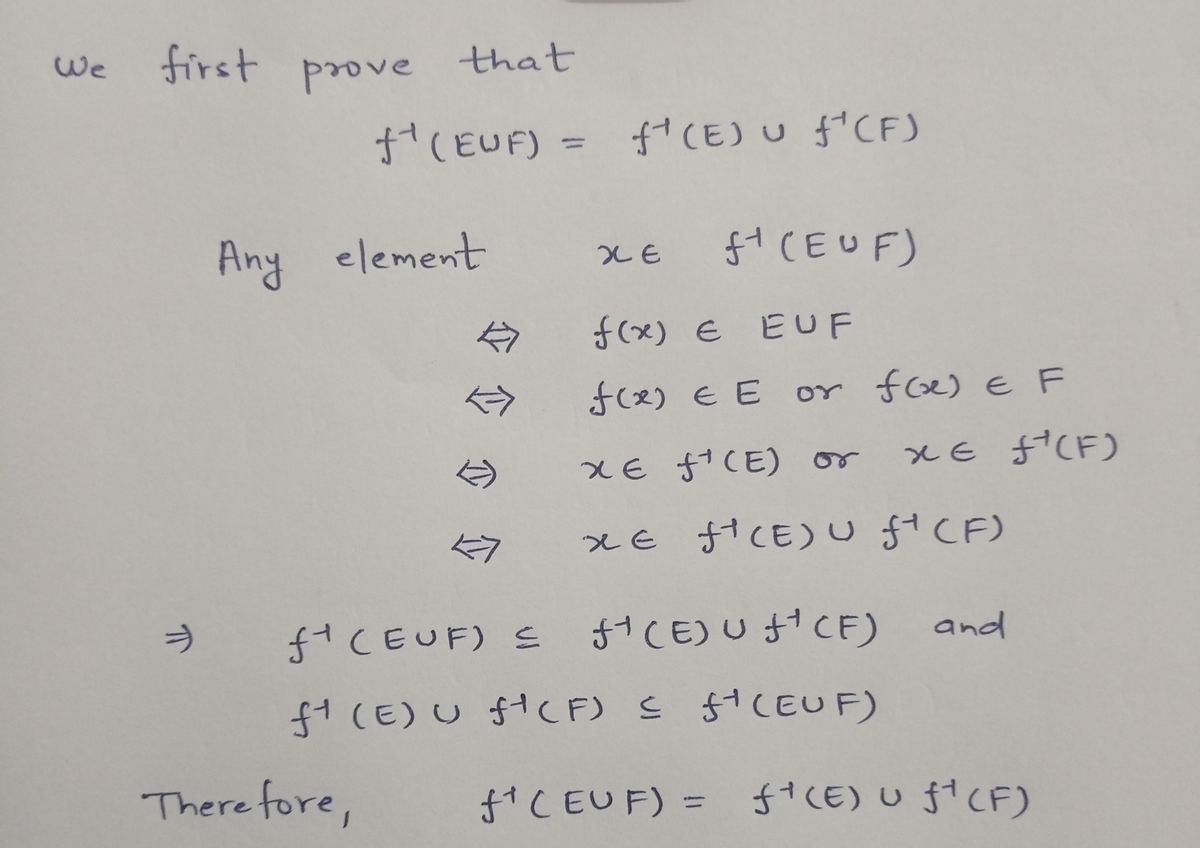 We first prove that
f⁻¹(E∪F) = f⁻¹(E) ∪ f⁻¹(F)
Any element x ∈ f⁻¹(E∪F)
⇔ f(x) ∈ E∪F
⇔ f(x) ∈ E or f(x) ∈ F
⇔ x ∈ f⁻¹(E) or x ∈ f⁻¹(F)
⇔ x ∈ f⁻¹(E) ∪ f⁻¹(F)
⇒ f⁻¹(E∪F) ⊆ f⁻¹(E) ∪ f⁻¹(F) and
f⁻¹(E) ∪ f⁻¹(F) ⊆ f⁻¹(E∪F)
Therefore, f⁻¹(E∪F) = f⁻¹(E) ∪ f⁻¹(F)